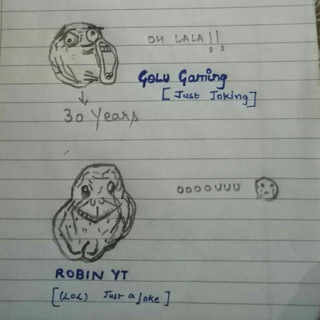 OH LALA!!
GOLU Gaming
[Just Joking]
30 Years
OOOOUUU
ROBIN YT
[(LOL) Just a Joke]